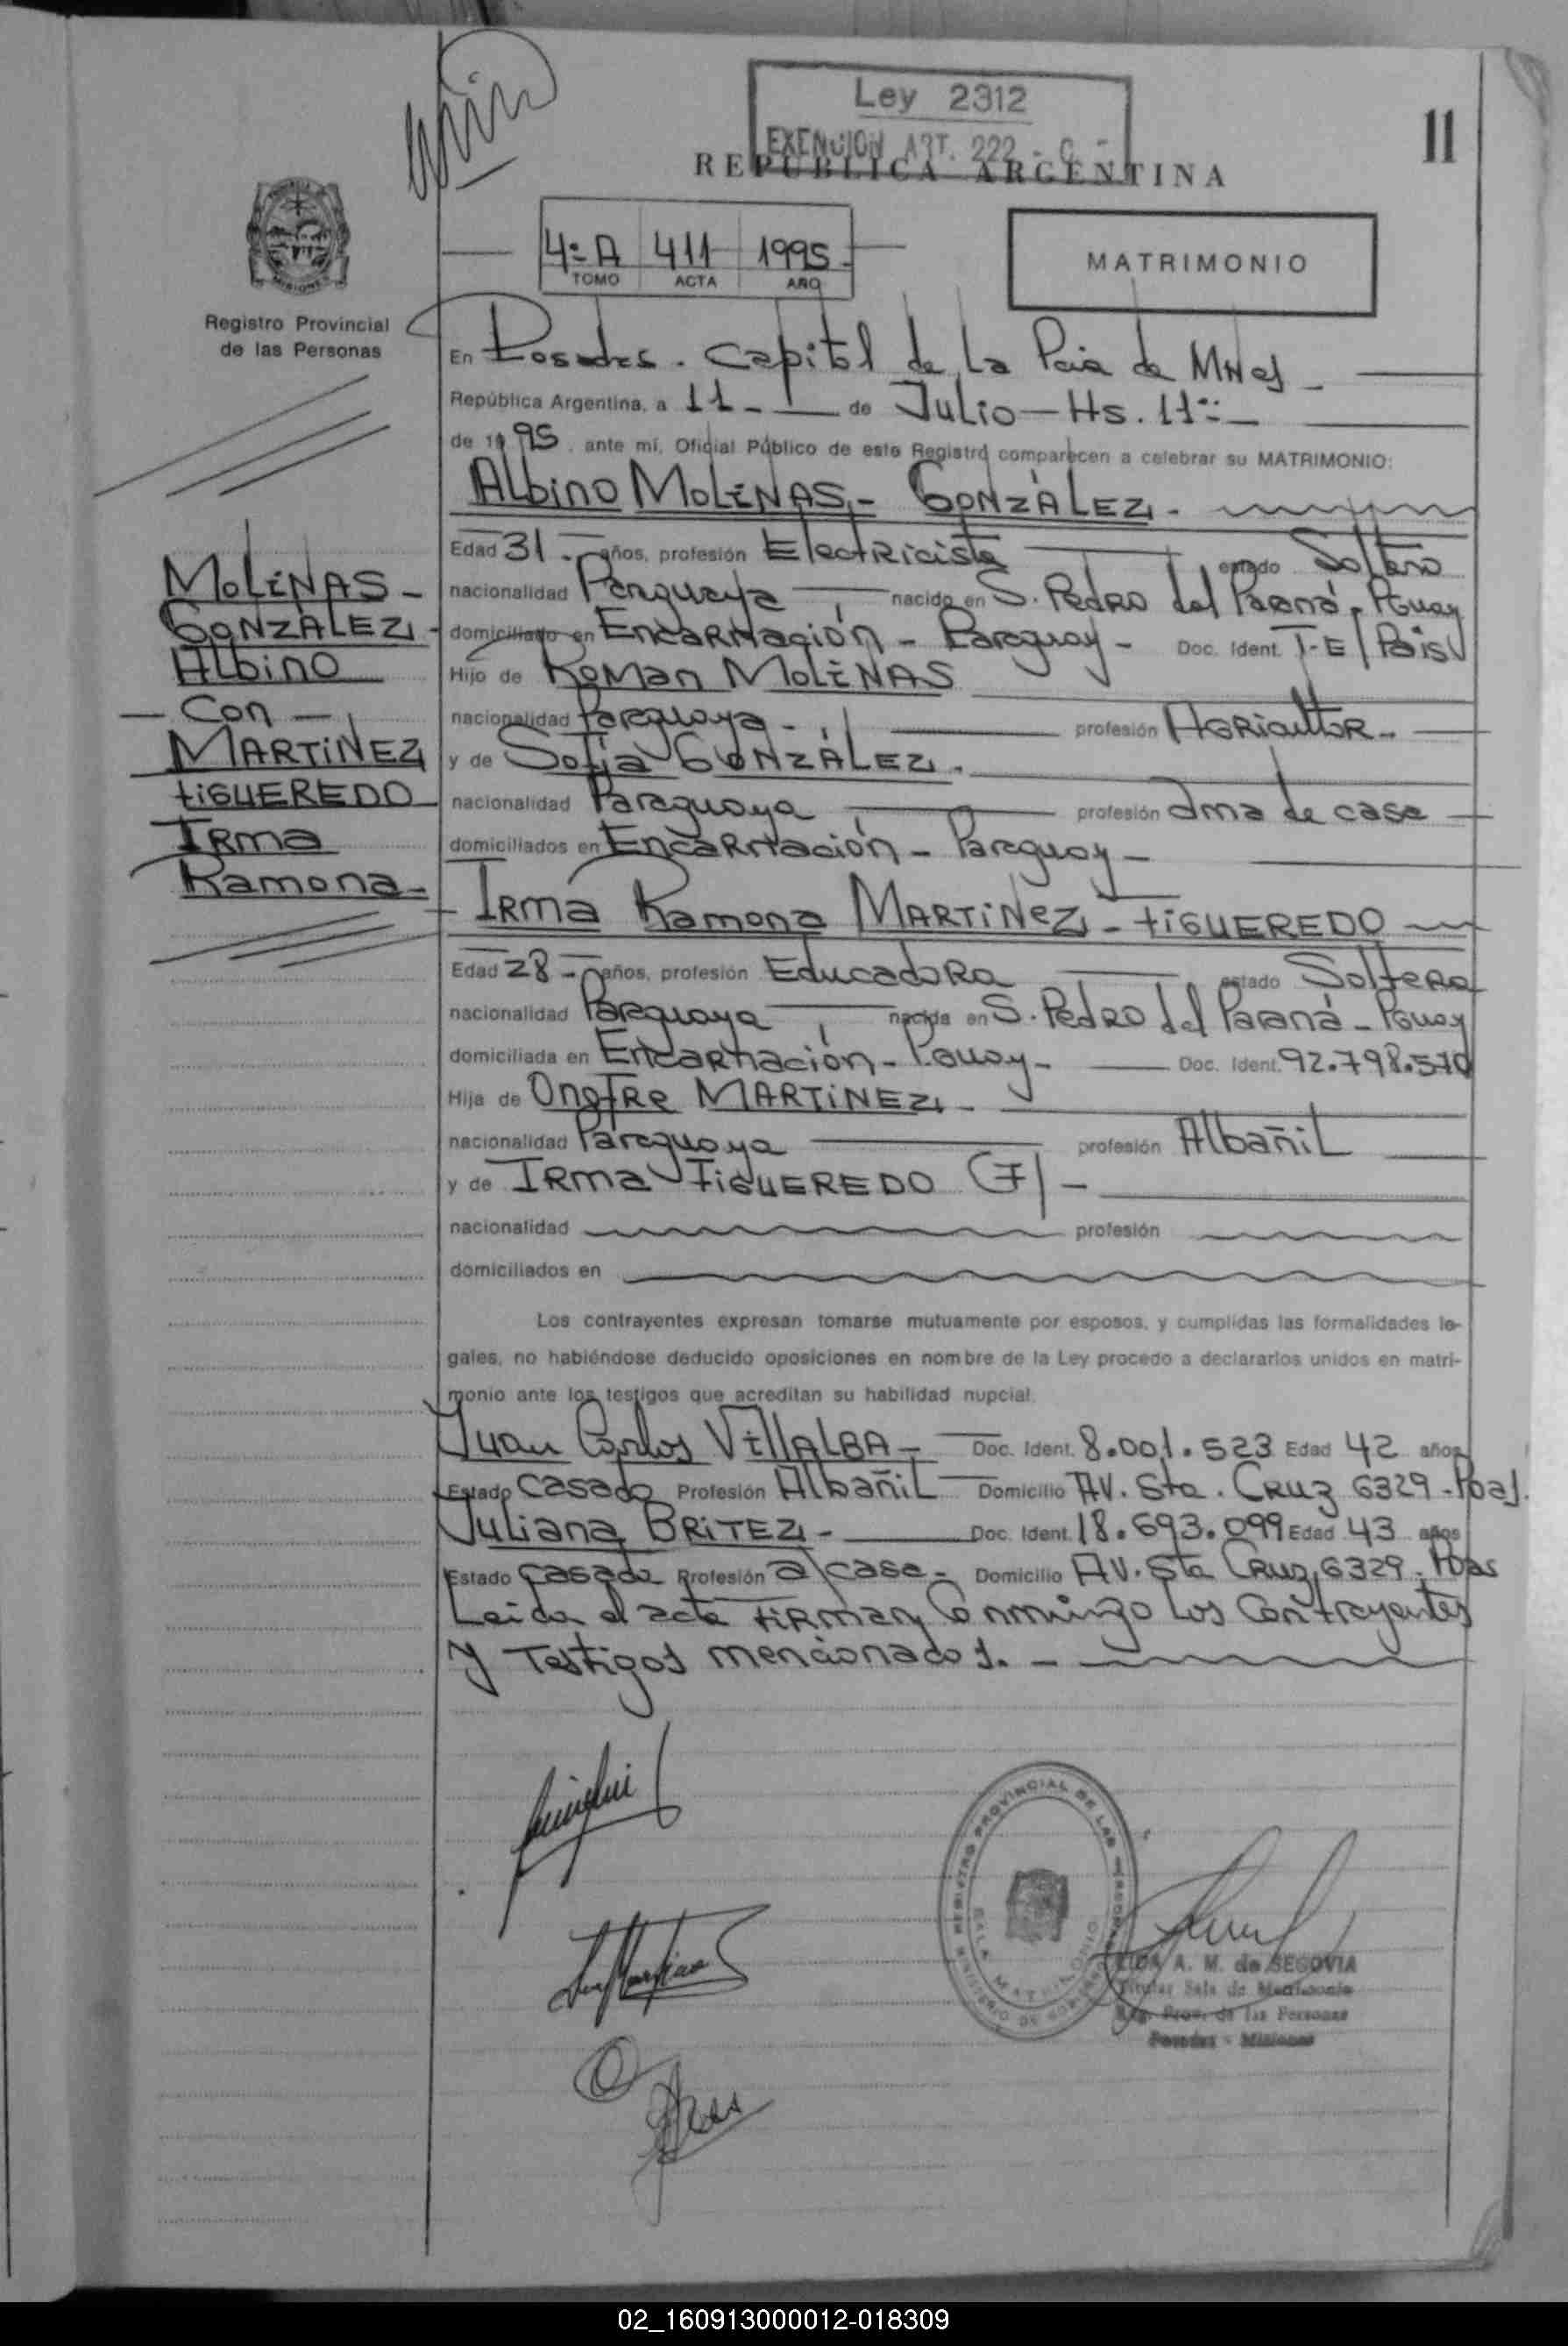 Ley 2312
EXENCION ART. 222 - C -
11
REPUBLICA ARGENTINA
4º A 411 1995
TOMO ACTA AÑO
MATRIMONIO
Registro Provincial
de las Personas
En Posadas. Capital de La Pcia de Mnes
República Argentina, a 11 - de Julio - Hs. 11
de 1995, ante mí, Oficial Público de este Registro comparecen a celebrar su MATRIMONIO:
Albino MOLINAS - GONZÁLEZ -
Edad 31 - años, profesión Electricista estado Soltero
nacionalidad Paraguaya nacido en S. Pedro del Paraná, Pguay
domiciliado en Encarnación - Paraguay - Doc. Ident. T-E/Pais
Hijo de Roman MOLINAS
nacionalidad Paraguaya - profesión Agricultor -
y de Sofía GONZÁLEZ -
nacionalidad Paraguaya profesión ama de casa
domiciliados en Encarnación - Paraguay -
MOLINAS -
GONZALEZ -
Albino
- Con -
MARTINEZ
FIGUEREDO
Irma
Ramona -
Irma Ramona MARTINEZ - FIGUEREDO
Edad 28 - años, profesión Educadora estado Soltera
nacionalidad Paraguaya nacida en S. Pedro del Paraná - Pguay
domiciliada en Encarnación - Pguay - Doc. Ident. 92.798.570
Hija de Onofre MARTINEZ -
nacionalidad Paraguaya profesión Albañil
y de Irma FIGUEREDO (F) -
nacionalidad profesión
domiciliados en
Los contrayentes expresan tomarse mutuamente por esposos, y cumplidas las formalidades le-
gales, no habiéndose deducido oposiciones en nombre de la Ley procedo a declararlos unidos en matri-
monio ante los testigos que acreditan su habilidad nupcial.
Juan Carlos VILLALBA - Doc. Ident. 8.001.523 Edad 42 años
Estado Casado Profesión Albañil Domicilio Av. Sta. Cruz 6329 - Pdas.
Juliana BRITEZ - Doc. Ident. 18.693.099 Edad 43 años
Estado Casada Profesión a/casa - Domicilio Av. Sta Cruz 6329 - Pdas
Leida el acta firman Conmigo los Contrayentes
y Testigos mencionados. -
REGISTRO PROVINCIAL DE LAS PERSONAS
SALA MATRIMONIO
MINISTERIO DE GOBIERNO
A. M. de SEGOVIA
Titular Sala de Matrimonio
Reg. Prov. de las Personas
Posadas - Misiones
02_160913000012-018309